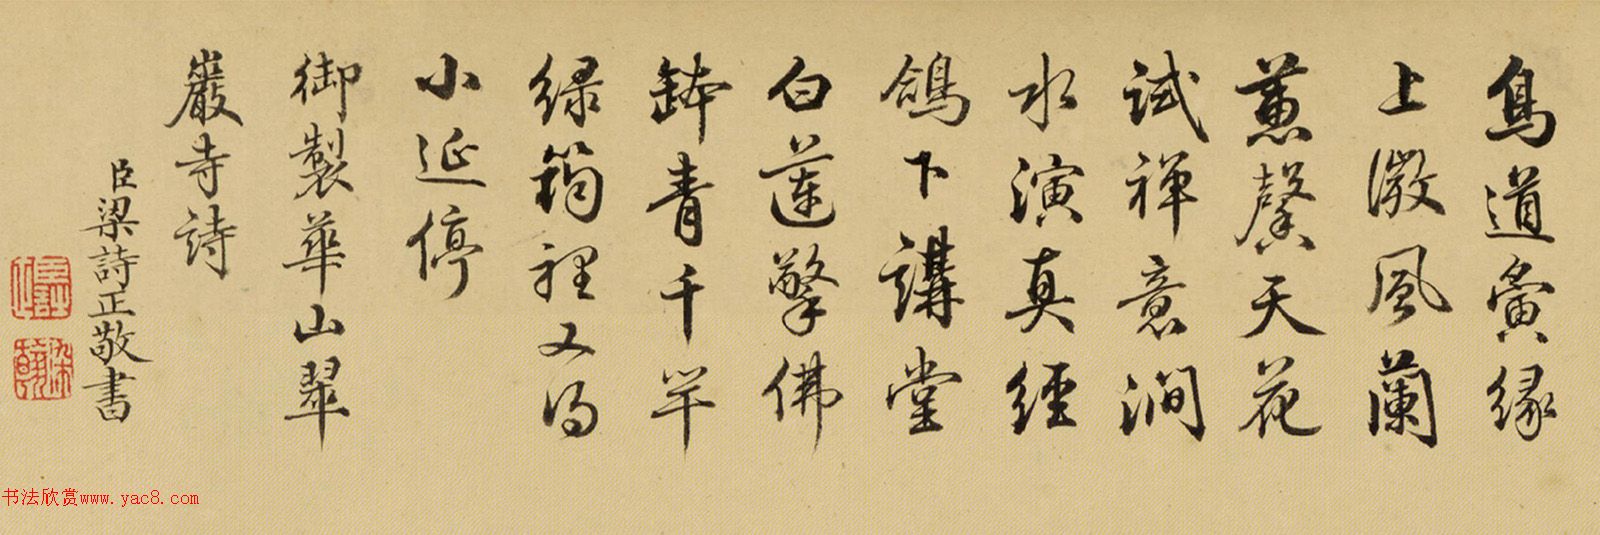 鳥道夤緣
上微風蘭
蕙馨天花
試禪意澗
水演真經
鴿下講堂
白蓮擎佛
缽青千竿
綠筠裡又得
小延停
御製華山翠
巖寺詩
臣梁詩正敬書
书法欣赏www.yac8.com